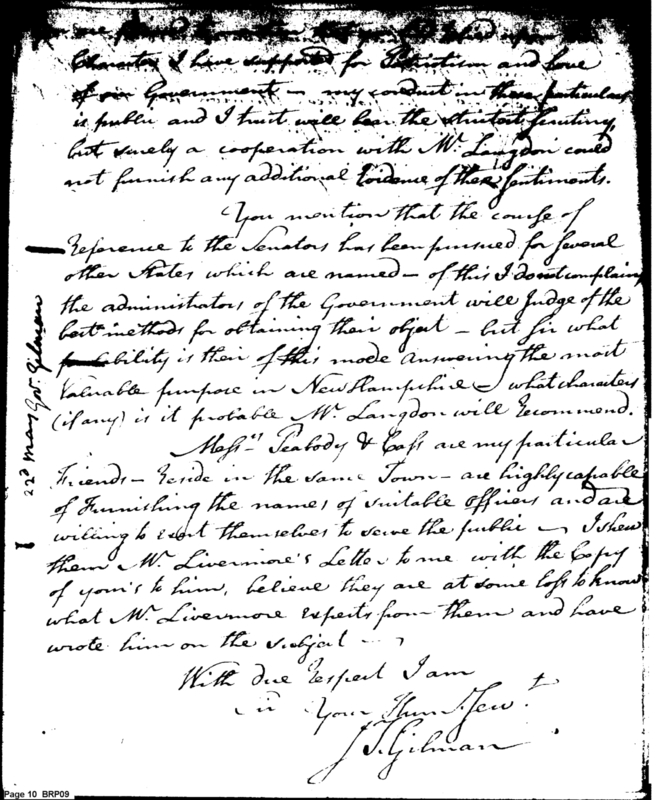 Character I have supported for Patriotism and Love
of our Government — my conduct in these particulars
is public and I trust will bear the strictest scrutiny,
but surely a cooperation with Mr. Langdon could
not furnish any additional Evidence of these Sentiments.
You mention that the course of
Reference to the Senators has been pursued for several
other States which are named — of this I do not complain
the administrators of the Government will Judge of the
best methods for obtaining their object — but Sir what
bility is their of this mode answering the most
valuable purpose in New Hampshire — what characters
(if any) is it probable Mr. Langdon will Recommend.
Messrs Peabody & Cass are my particular
Friends — Reside in the same Town — are highly capable
of Furnishing the names of suitable officers and are
willing to exert themselves to serve the public — I shew
them Mr. Livermore's Letter to me with the Copy
of your's to him, believe they are at some Loss to know
what Mr. Livermore expects from them and have
wrote him on the subject —
With due Respect I am
Sir Your Humb. Serv.t
J T Gilman
22d May Gov. Gilman
Page 10 BRP09